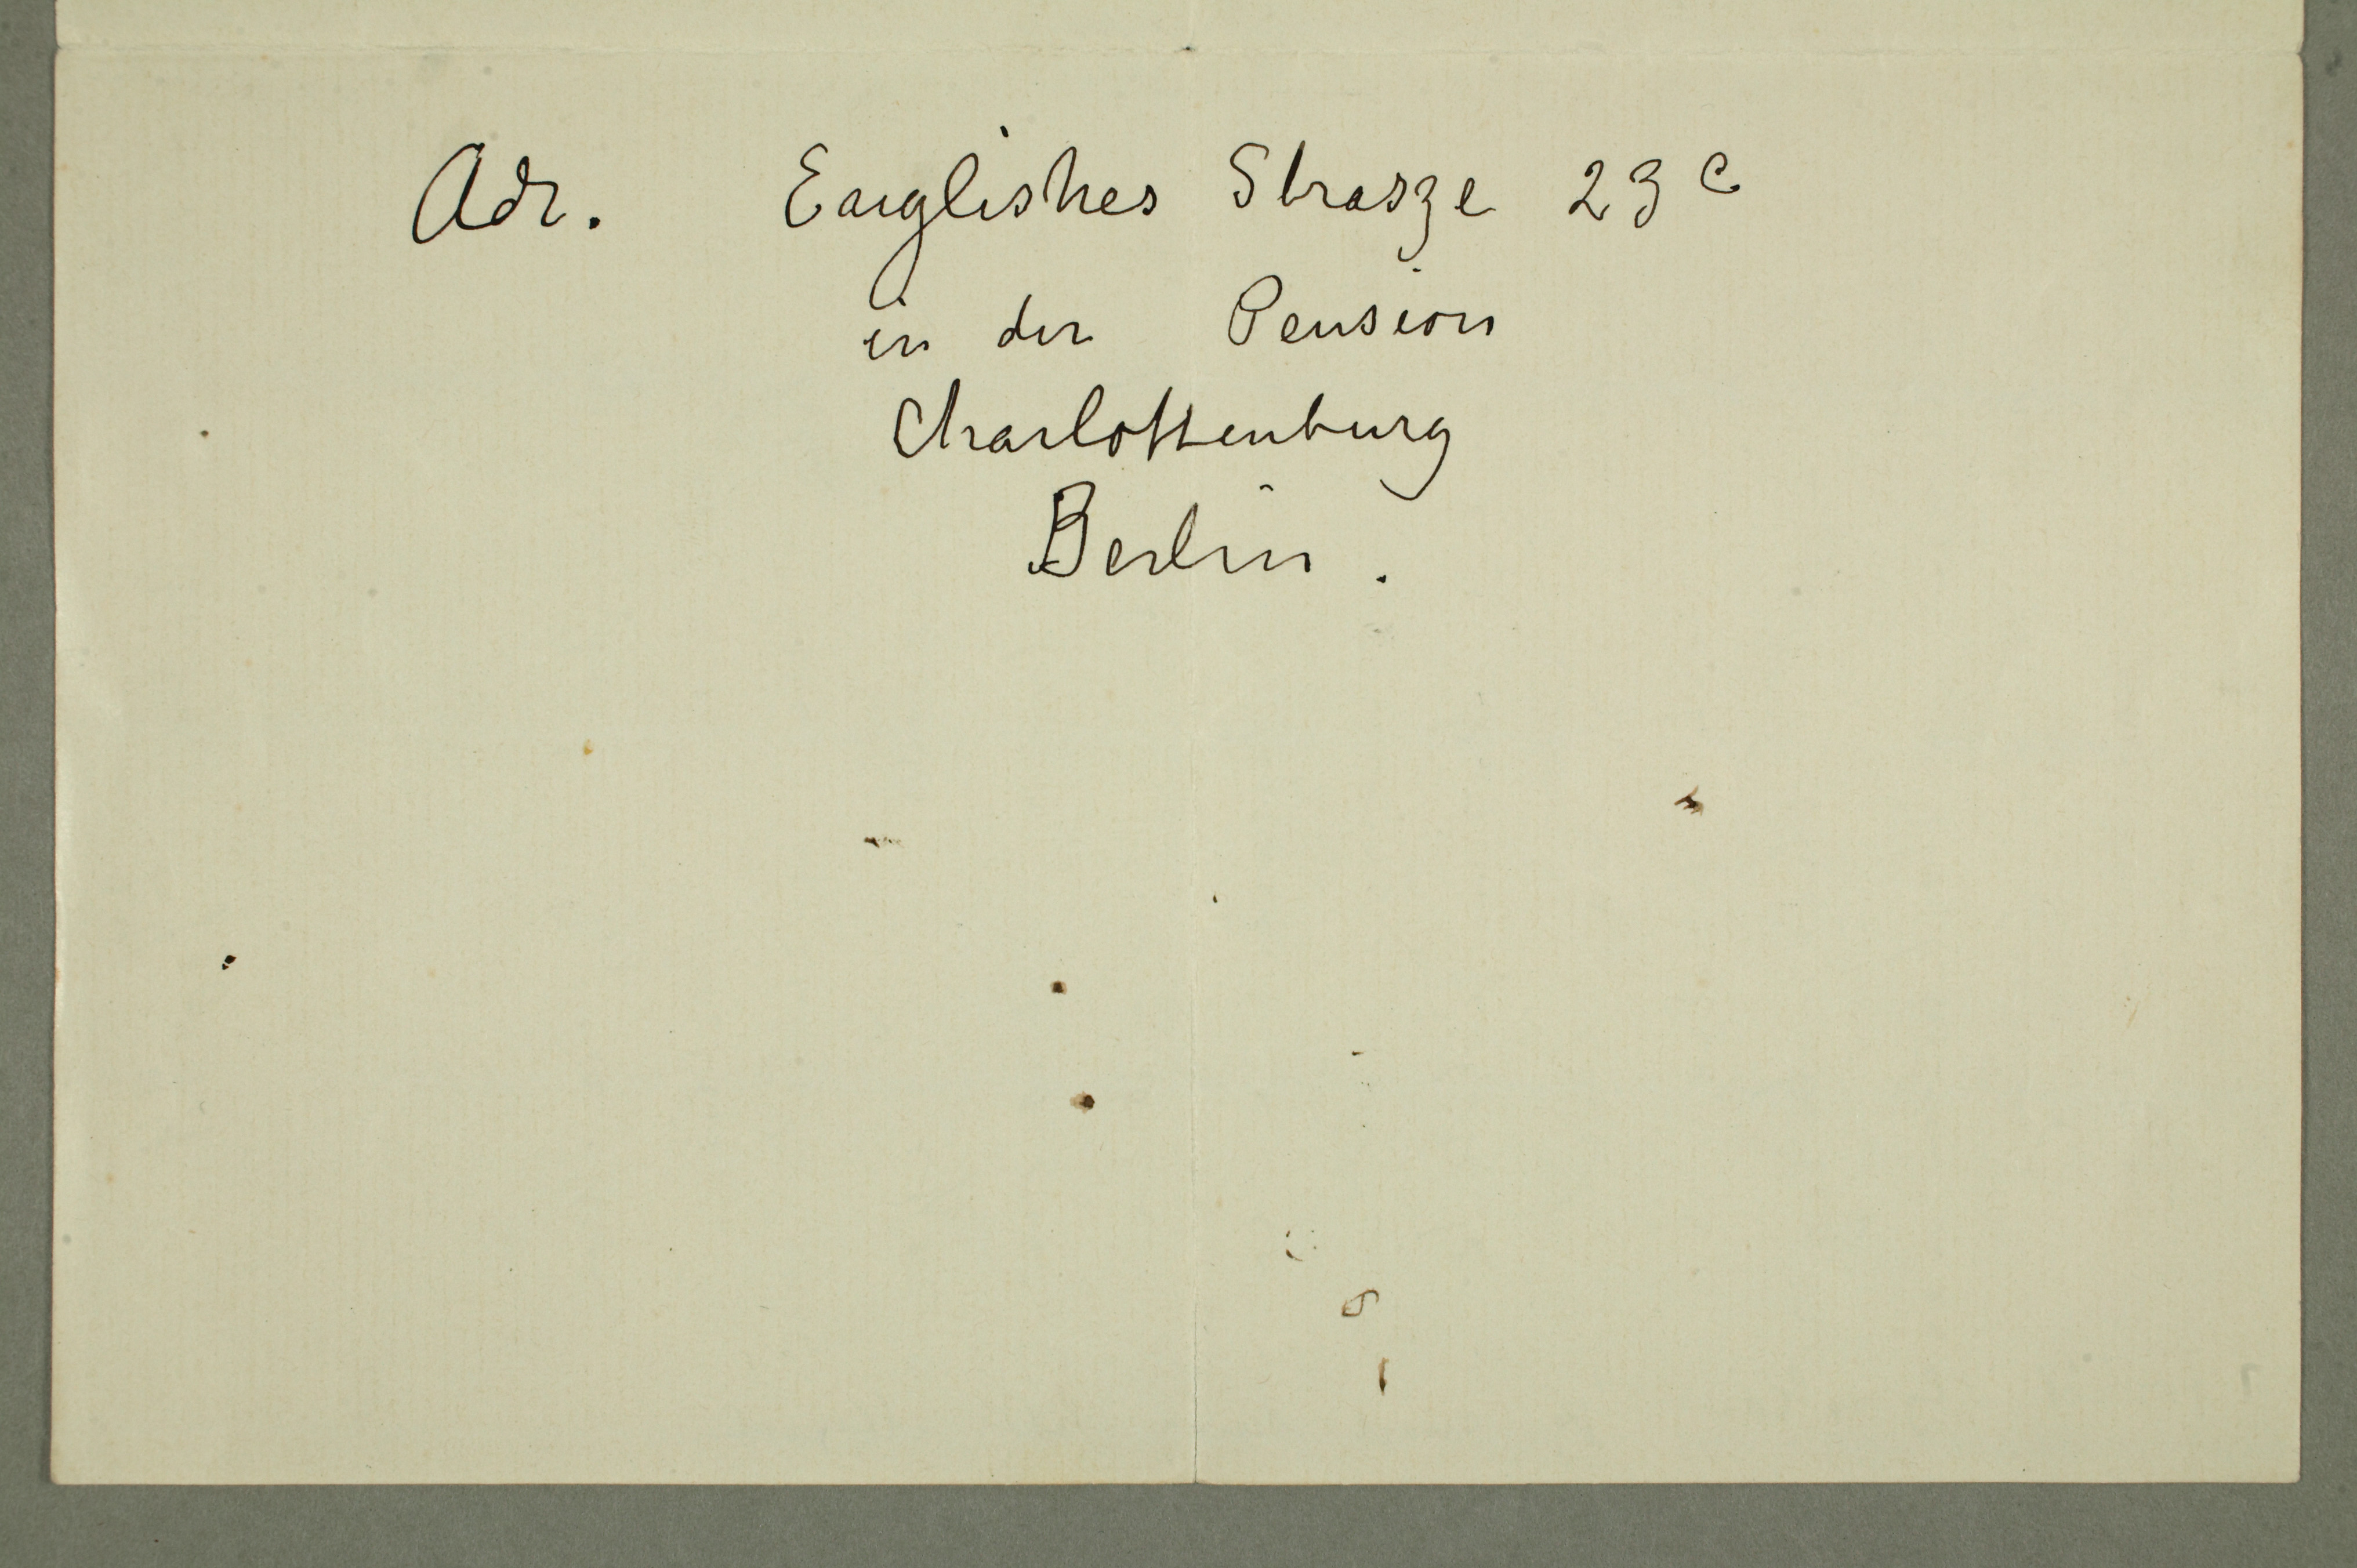 Adr. Englishes Strasze 23 c
in der Pension
Charlottenburg
Berlin.